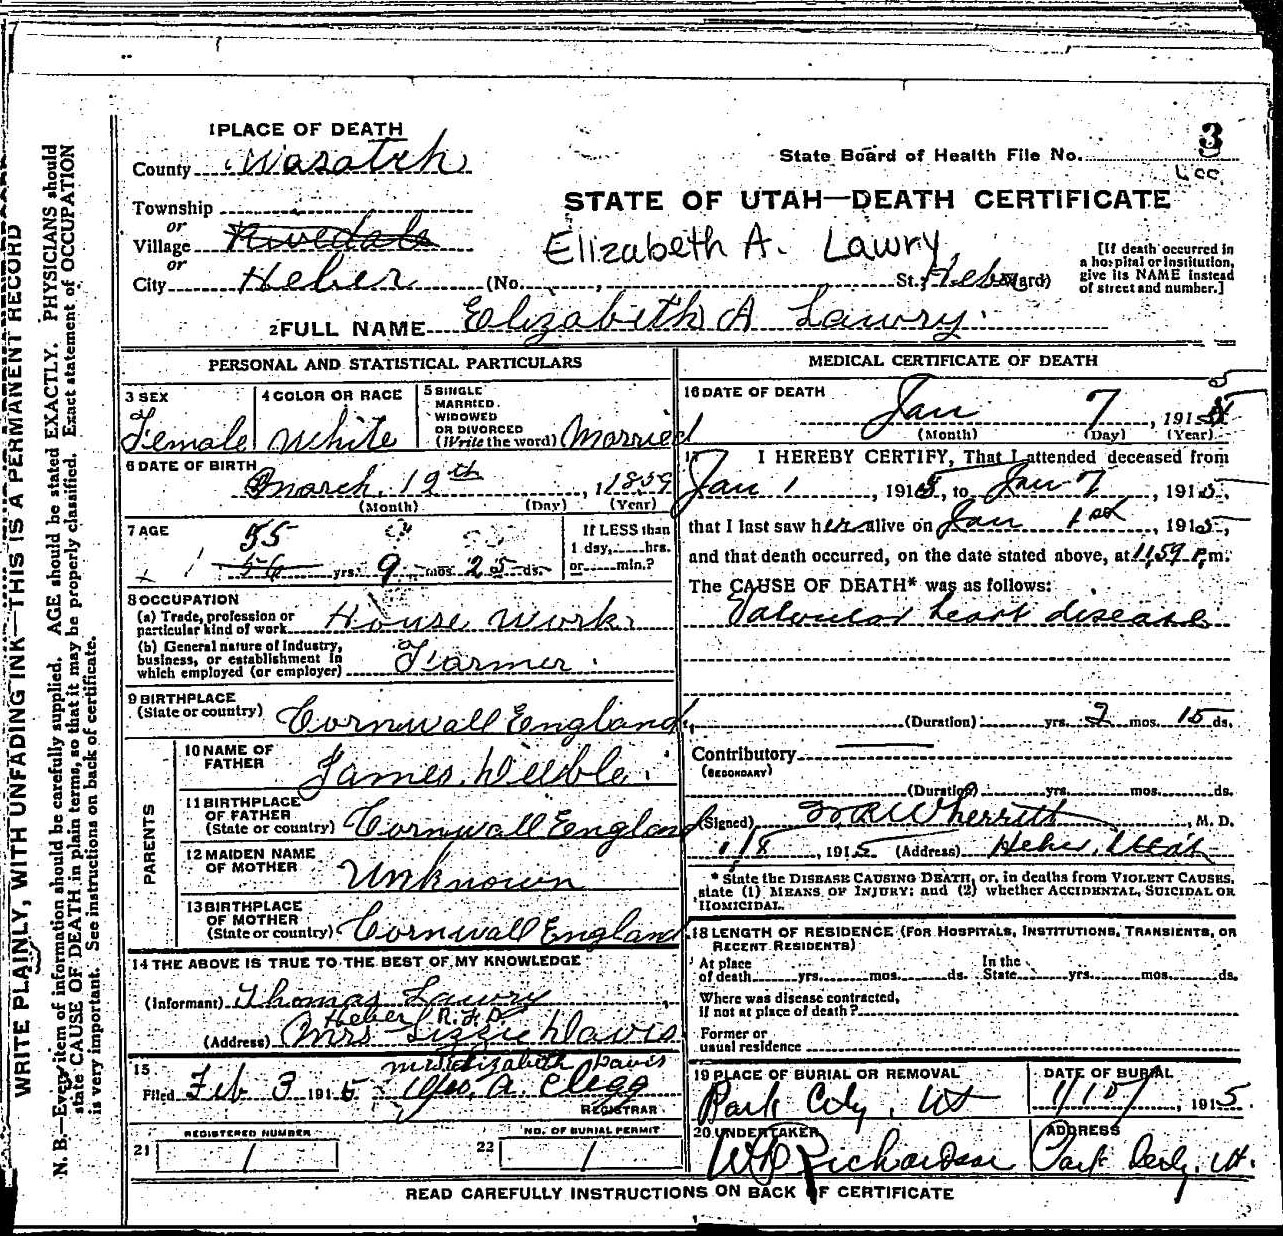 WRITE PLAINLY, WITH UNFADING INK—THIS IS A PERMANENT RECORD
N. B.—Every item of information should be carefully supplied. AGE should be stated EXACTLY. PHYSICIANS should
state CAUSE OF DEATH in plain terms, so that it may be properly classified. Exact statement of OCCUPATION
is very important. See instructions on back of certificate.
1 PLACE OF DEATH
County Wasatch
Township
or
Village
or
City Heber
State Board of Health File No. 3
STATE OF UTAH—DEATH CERTIFICATE
Elizabeth A. Lawry
(No. St.; Heber Ward)
[If death occurred in
a hospital or institution,
give its NAME instead
of street and number.]
2 FULL NAME Elizabeth A Lawry
PERSONAL AND STATISTICAL PARTICULARS
3 SEX
Female
4 COLOR OR RACE
White
5 SINGLE
MARRIED
WIDOWED
OR DIVORCED
(Write the word) Married
6 DATE OF BIRTH
March 12th, 1859
(Month) (Day) (Year)
7 AGE
55
56 yrs. 9 mos. 25 ds.
If LESS than
1 day, hrs.
or min.?
8 OCCUPATION
(a) Trade, profession or
particular kind of work House Work
(b) General nature of Industry,
business, or establishment in
which employed (or employer) Farmer
9 BIRTHPLACE
(State or country) Cornwall England
PARENTS
10 NAME OF
FATHER James
11 BIRTHPLACE
OF FATHER
(State or country) Cornwall England
12 MAIDEN NAME
OF MOTHER Unknown
13 BIRTHPLACE
OF MOTHER
(State or country) Cornwall England
14 THE ABOVE IS TRUE TO THE BEST OF MY KNOWLEDGE
(Informant) Thomas Lawry
Heber R.F.D
(Address) Mrs Lizzie Davis
15 Mrs Elizabeth Davis
Filed Feb 3 1915 Geo. A. Clegg
REGISTRAR
21 REGISTERED NUMBER
1
22 NO. OF BURIAL PERMIT
1
MEDICAL CERTIFICATE OF DEATH
16 DATE OF DEATH
Jan 7, 1915
(Month) (Day) (Year)
17 I HEREBY CERTIFY, That I attended deceased from
Jan 1, 1915, to Jan 7, 1915,
that I last saw her alive on Jan 1st, 1915,
and that death occurred, on the date stated above, at 11,59 P. m.
The CAUSE OF DEATH* was as follows:
Valvular heart disease
(Duration) yrs. 2 mos. 15 ds.
Contributory
(SECONDARY)
(Duration) yrs. mos. ds.
(Signed) Wherritt, M. D.
1/8, 1915 (Address) Heber, Utah
* State the DISEASE CAUSING DEATH, or, in deaths from VIOLENT CAUSES,
state (1) MEANS OF INJURY; and (2) whether ACCIDENTAL, SUICIDAL OR
HOMICIDAL.
18 LENGTH OF RESIDENCE (FOR HOSPITALS, INSTITUTIONS, TRANSIENTS, OR
RECENT RESIDENTS)
At place In the
of death yrs. mos. ds. State yrs. mos. ds.
Where was disease contracted,
if not at place of death?
Former or
usual residence
19 PLACE OF BURIAL OR REMOVAL
Park City, Ut
DATE OF BURIAL
1/10/, 1915
20 UNDERTAKER
Richardson
ADDRESS
Park City, Ut.
READ CAREFULLY INSTRUCTIONS ON BACK OF CERTIFICATE